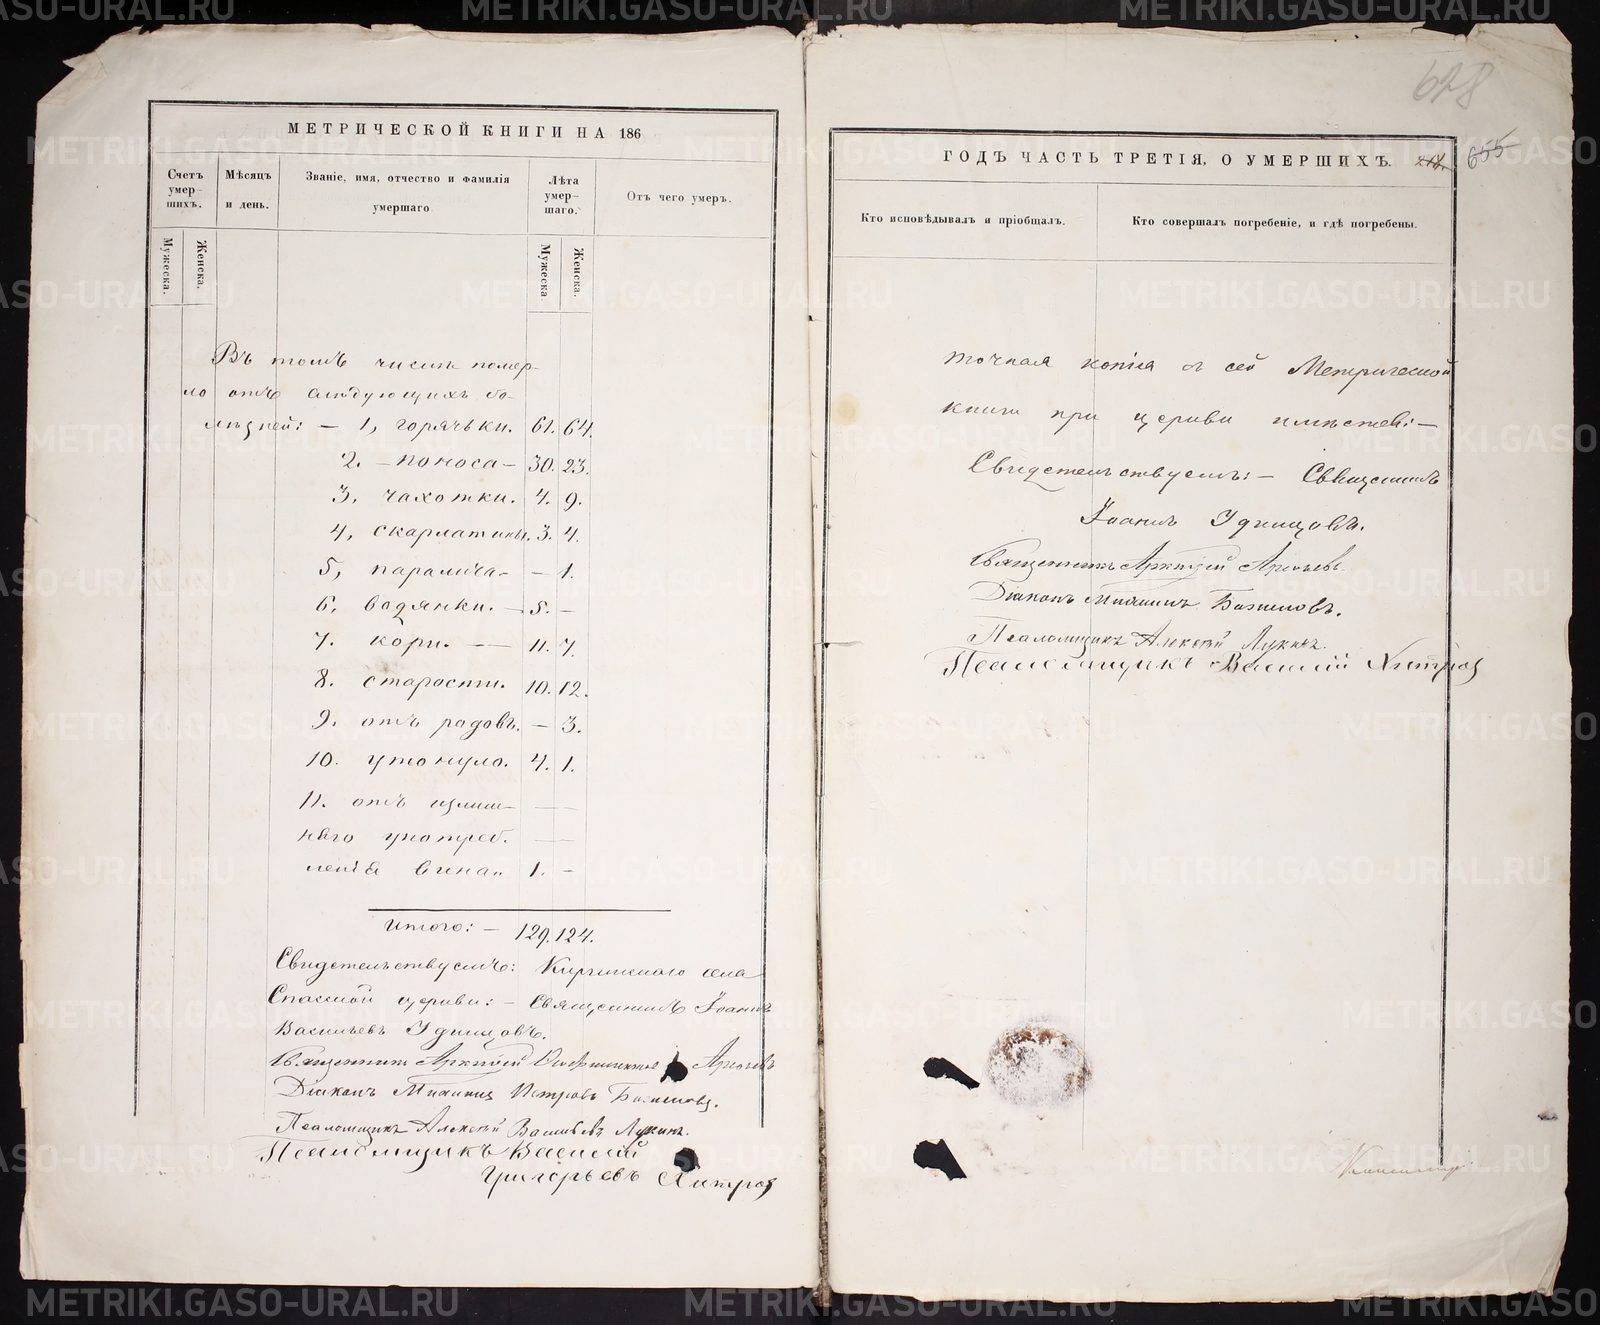 МЕТРИЧЕСКОЙ КНИГИ НА 186
Счетъ умерших.
Мѣсяцъ и день.
Званіе, имя, отчество и фамилія умершаго
Лѣта умершаго.
Отъ чего умеръ.
Мужеска.
Женска.
Мужеска.
Женска.
Въ томъ числѣ помер-
ло отъ слѣдующихъ бо-
лѣзней: – 1, горячьки. 61. 64.
2. – поноса – 30. 23.
3, чахотки. 4. 9.
4, скарлатины. 3. 4.
5, паралича – – 1.
6, водянки. – 5. –
7. кори. — 11. 7.
8. старости. 10. 12.
9. отъ родовъ. – 3.
10. утонуло. 4. 1.
11. отъ излиш–
няго употреб.
ленія вина.. 1. –
Итого: – 129. 124.
Свидетельствуемъ: Киргинскаго села
Спасской церкви: – Священникъ Іоаннъ
Васильевъ Удинцовъ.
Священникъ
Діаконъ Михаилъ Петровъ
Псаломщикъ Алексѣй Васильевъ Лукинъ.
Псаломщикъ Василій
Григорьевъ Хитров
628
ГОДЪ ЧАСТЬ ТРЕТІЯ, О УМЕРШИХЪ.
655
Кто исповѣдывалъ и пріобщалъ.
Кто совершалъ погребеніе, и гдѣ погребены.
Точная копія съ сей Метрической
книги при церкви имѣется: –
Свидетельствуемъ: – Священникъ
Іоаннъ Удинцовъ.
Священникъ
Діаконъ Михаилъ
Псаломщикъ Алексѣй Лукинъ.
Псаломщикъ Василій Хитров
METRIKI.GASO-URAL.RU